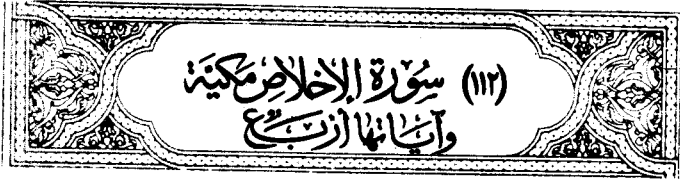 (١١٢) سُورَة الإِخلَاصِ مَكيَّة
وَآيَاتُهَا أَرْبَعٌ